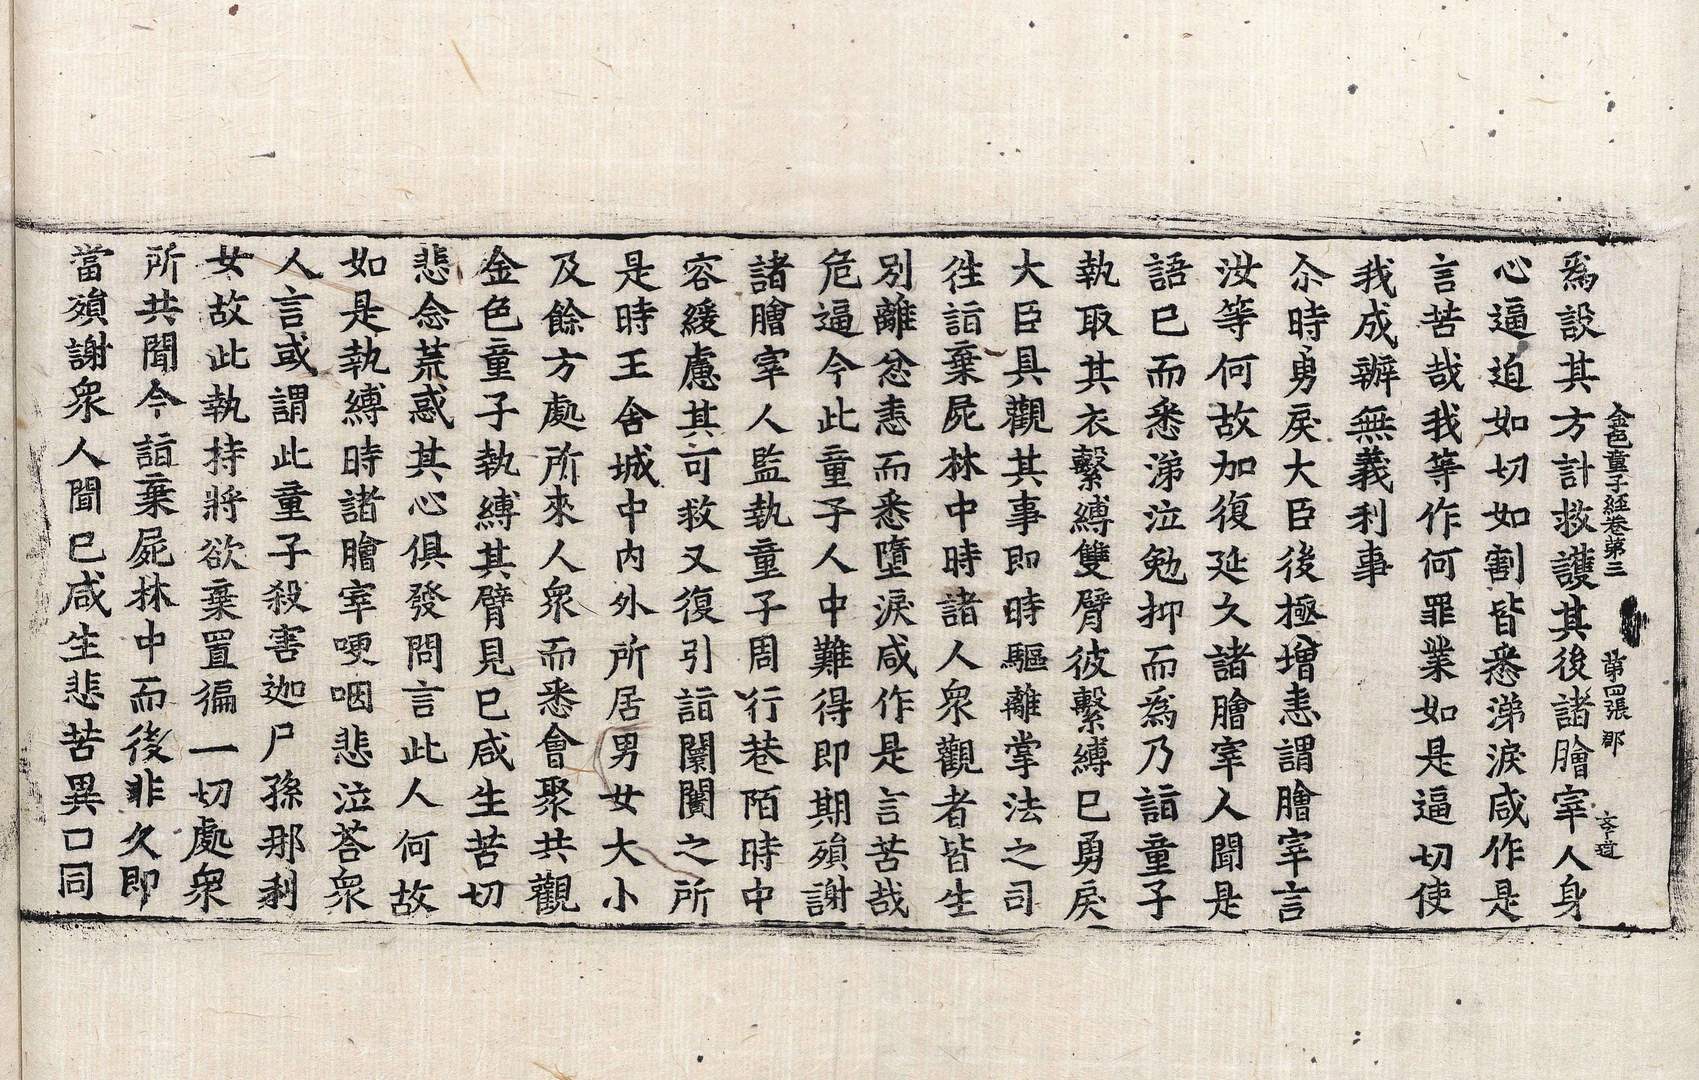 金色童子經卷第三　第四張　郡　玄道
爲設其方計救護其後諸膾宰人身
心逼迫如切如割皆悉涕淚咸作是
言苦哉我等作何罪業如是逼切使
我成辦無義利事
尒時勇戾大臣後極增恚謂膾宰言
汝等何故加復延久諸膾宰人聞是
語已而悉涕泣勉抑而爲乃詣童子
執取其衣繫縛雙臂彼繫縛已勇戾
大臣具觀其事即時驅離掌法之司
徃詣棄屍林中時諸人衆觀者皆生
別離忿恚而悉墮淚咸作是言苦哉
危逼今此童子人中難得即期殞謝
諸膾宰人監執童子周行巷陌時中
容緩慮其可救又復引詣闤闠之所
是時王舍城中内外所居男女大小
及餘方處所來人衆而悉會聚共觀
金色童子執縛其臂見已咸生苦切
悲念荒惑其心俱發問言此人何故
如是執縛時諸膾宰哽咽悲泣荅衆
人言或謂此童子殺害迦尸孫那利
女故此執持將欲棄置徧一切處衆
所共聞今詣棄屍林中而後非久即
當殞謝衆人聞已咸生悲苦異口同